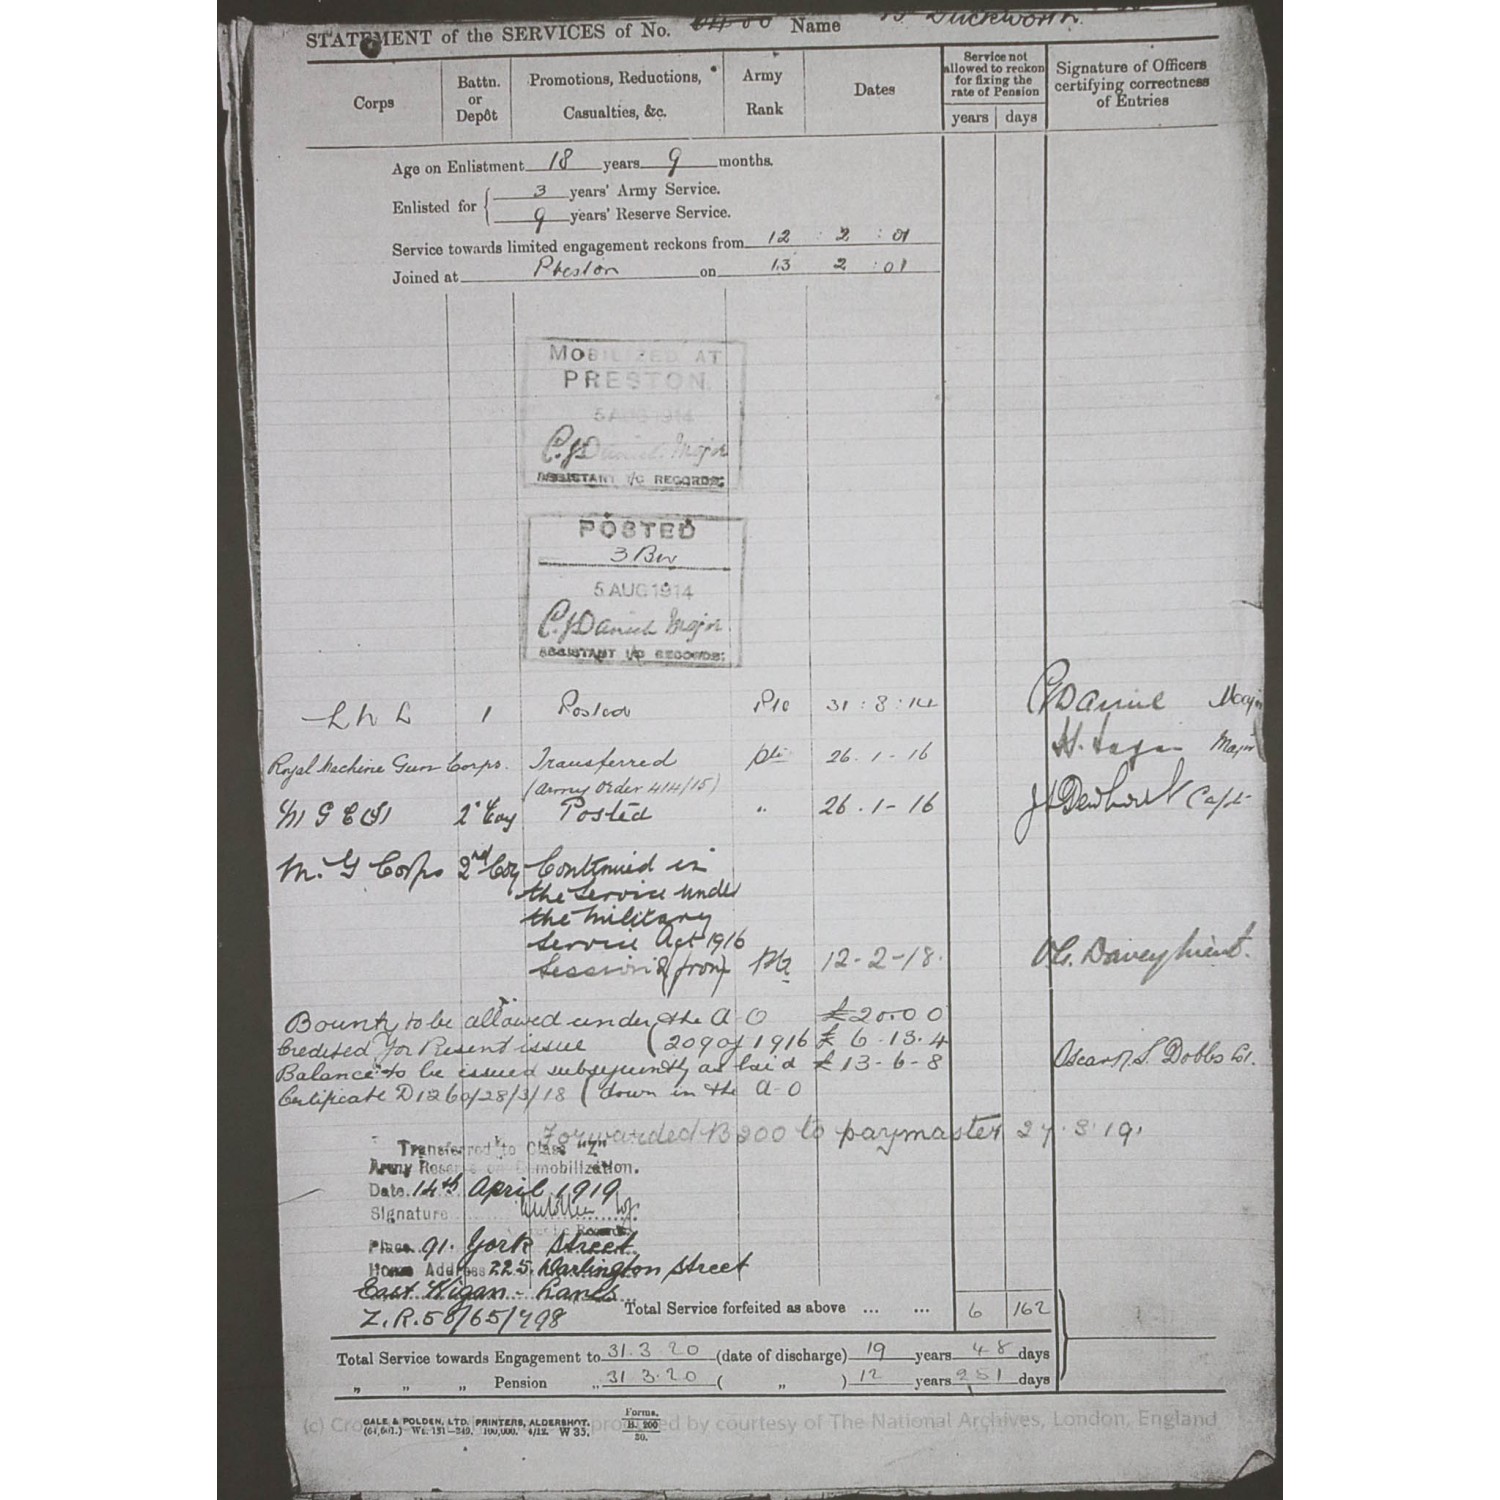 STATEMENT of the SERVICES of No. 6400 Name B. Duckworth
Corps
Battn. or Depôt
Promotions, Reductions, Casualties, &c.
Army Rank
Dates
Service not allowed to reckon for fixing the rate of Pension
years days
Signature of Officers certifying correctness of Entries
Age on Enlistment 18 years 9 months.
Enlisted for 3 years' Army Service.
9 years' Reserve Service.
Service towards limited engagement reckons from 12 : 2 : 01
Joined at Preston on 13 2 : 01
MOBILIZED AT
PRESTON.
5 AUG 1914
C. J. Daniel. Major
ASSISTANT I/C RECORDS.
POSTED
3 Bn
5 AUG 1914
C. J. Daniel Major
ASSISTANT I/C RECORDS.
L N L 1 Posted Pte 31 : 8 : 14 Daniel Major
Royal Machine Gun Corps. Transferred Pte 26 . 1 - 16 Major
(Army Order 414/15)
M G C (I) 2 Coy Posted " 26 . 1 - 16 J Dewhurst Capt
M. G Corps 2nd Coy Continued in
the Service under
the Military
Service Act 1916
Session 2 (from) Pte 12 - 2 - 18.
Bounty to be allowed under the A-O £20.0 0
Credited for Present issue (209 of 1916 £ 6 . 13 . 4
Balance to be issued subsequently as laid £ 13 - 6 - 8 Oscar S. Dobbs Lt.
Certificate D1260/28/3/18 (down in the A-O
Forwarded B 200 to paymaster 27 . 3 . 19.
Transferred to Class "Z"
Army Reserve on Demobilization.
Date. 14th April 1919
Signature
Place. 91. York Street
Home Address 225. Darlington Street
East Wigan - Lancs
Z.R.58/65/798
Total Service forfeited as above ... ... 6 162
Total Service towards Engagement to 31.3.20 (date of discharge) 19 years 48 days
" " " Pension " 31 3.20 ( " ) 12 years 251 days
GALE & POLDEN, LTD. PRINTERS, ALDERSHOT.
(64,661.) Wt. 151—249. 100,000. 4/12. W 35.
Forms.
B. 200
20.
(c) Cro by courtesy of The National Archives, London, England